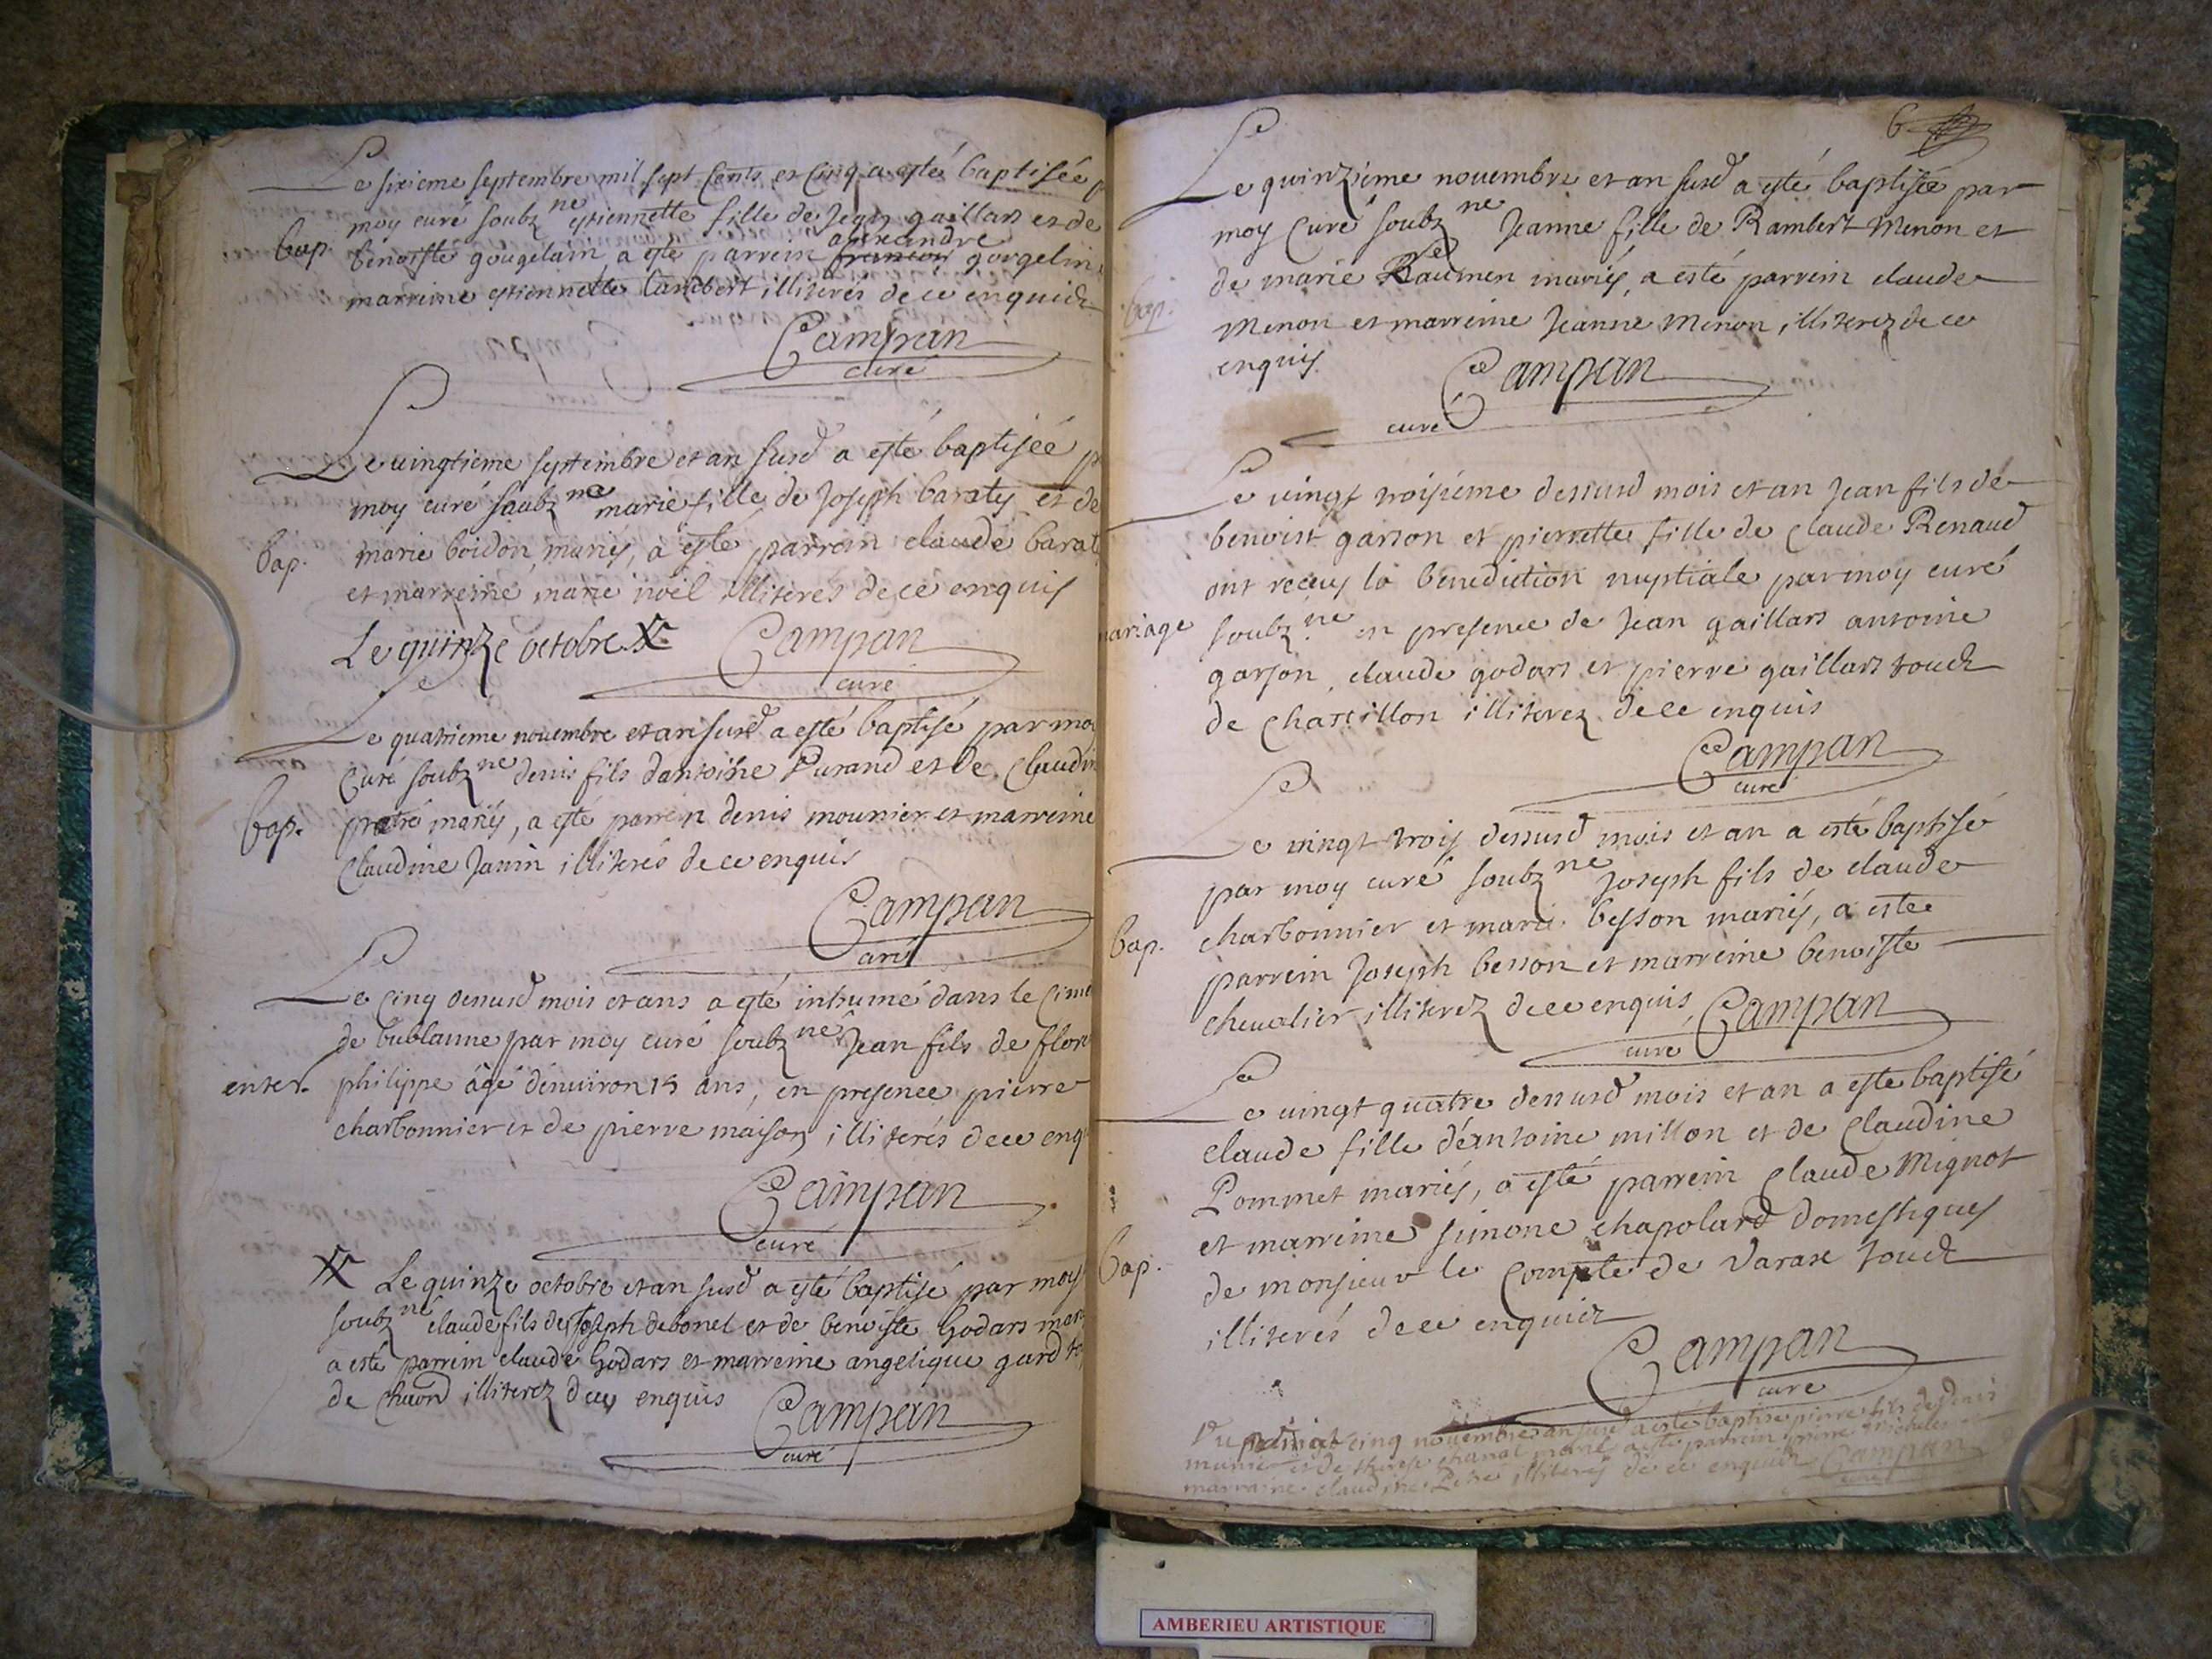 Le sixieme septembre mil sept Cents et Cinq a esté baptisée
moy curé soubz ne estiennette fille de Jean gaillars et de
bap. benoiste gougelain a esté parrein francois alexandre gorgelin
marreine estiennette lambert illiterés de ce enquiz
Campan
curé
Le vingtieme septembre et an susd a esté baptisée
moy curé soubz ne marie fille de Joseph baraty et de
bap. marie boidon, mariés, a esté parrein claude barat
et marreine marie noël illiterés de ce enquis
Le quinze octobre X Campan
curé
Le quatrieme novembre et an susd a esté baptisé par moy
Curé soubz ne denis fils dantoine Durand et de Claudin
bap. mariés, a esté parrein denis mounier et marreine
Claudine Janin illiterés de ce enquis
Campan
curé
Le Cinq dessusd mois et ans a esté inhumé dans le Cime
de bublanne par moy curé soubz ne Jean fils de flor
enter. philippe âgé denviron 15 ans, en presence pierre
charbonnier et de pierre maison illiterés de ce enq
Campan
curé
X Le quinze octobre et an susd a esté baptisé par moy
soubz ne claude fils de Joseph debonel et de benoiste Godars mar
a esté parrein claude Godars et marreine angelique gard
de illiterez de ce enquis Campan
curé
6
Le quinzieme novembre et an susd a esté baptisée par
moy Curé soubz ne Jeanne fille de Rambert Menon et
de marie mariés, a esté parrein claude
bap. Menon et marreine Jeanne Menon, illiterez de ce
enquis Campan
curé
Le vingt troisieme dessusd mois et an Jean fils de
benoist garson et pierrette fille de Claude Renaud
ont receus la benediction nuptiale par moy curé
mariage soubz ne en presence de Jean gaillars antoine
garson, claude godars et pierre gaillars touch
de Chatillon illiterez de ce enquis
Campan
curé
Le vingt trois dessusd mois et an a esté baptisé
par moy curé soubz ne Joseph fils de claude
charbonnier et marie besson mariés, a este
bap. parrein Joseph besson et marreine benoiste
chevalier illiterez de ce enquis, Campan
curé
Le vingt quatre dessusd mois et an a esté baptisé
claude fille d'antoine millon et de Claudine
Pommet mariés, a esté parrein Claude Mignot
et marreine simone chapolard domestiques
bap. de monsieur le Compte de Varax touch
illiterés de ce enquiz
Campan
curé
vingt cinq novembre an susd a esté baptisé pierre fils de denis
munier et de chanal mariés a esté parrein pierre
marraine claudine illiterés de ce enquiz Campan
curé
AMBERIEU ARTISTIQUE